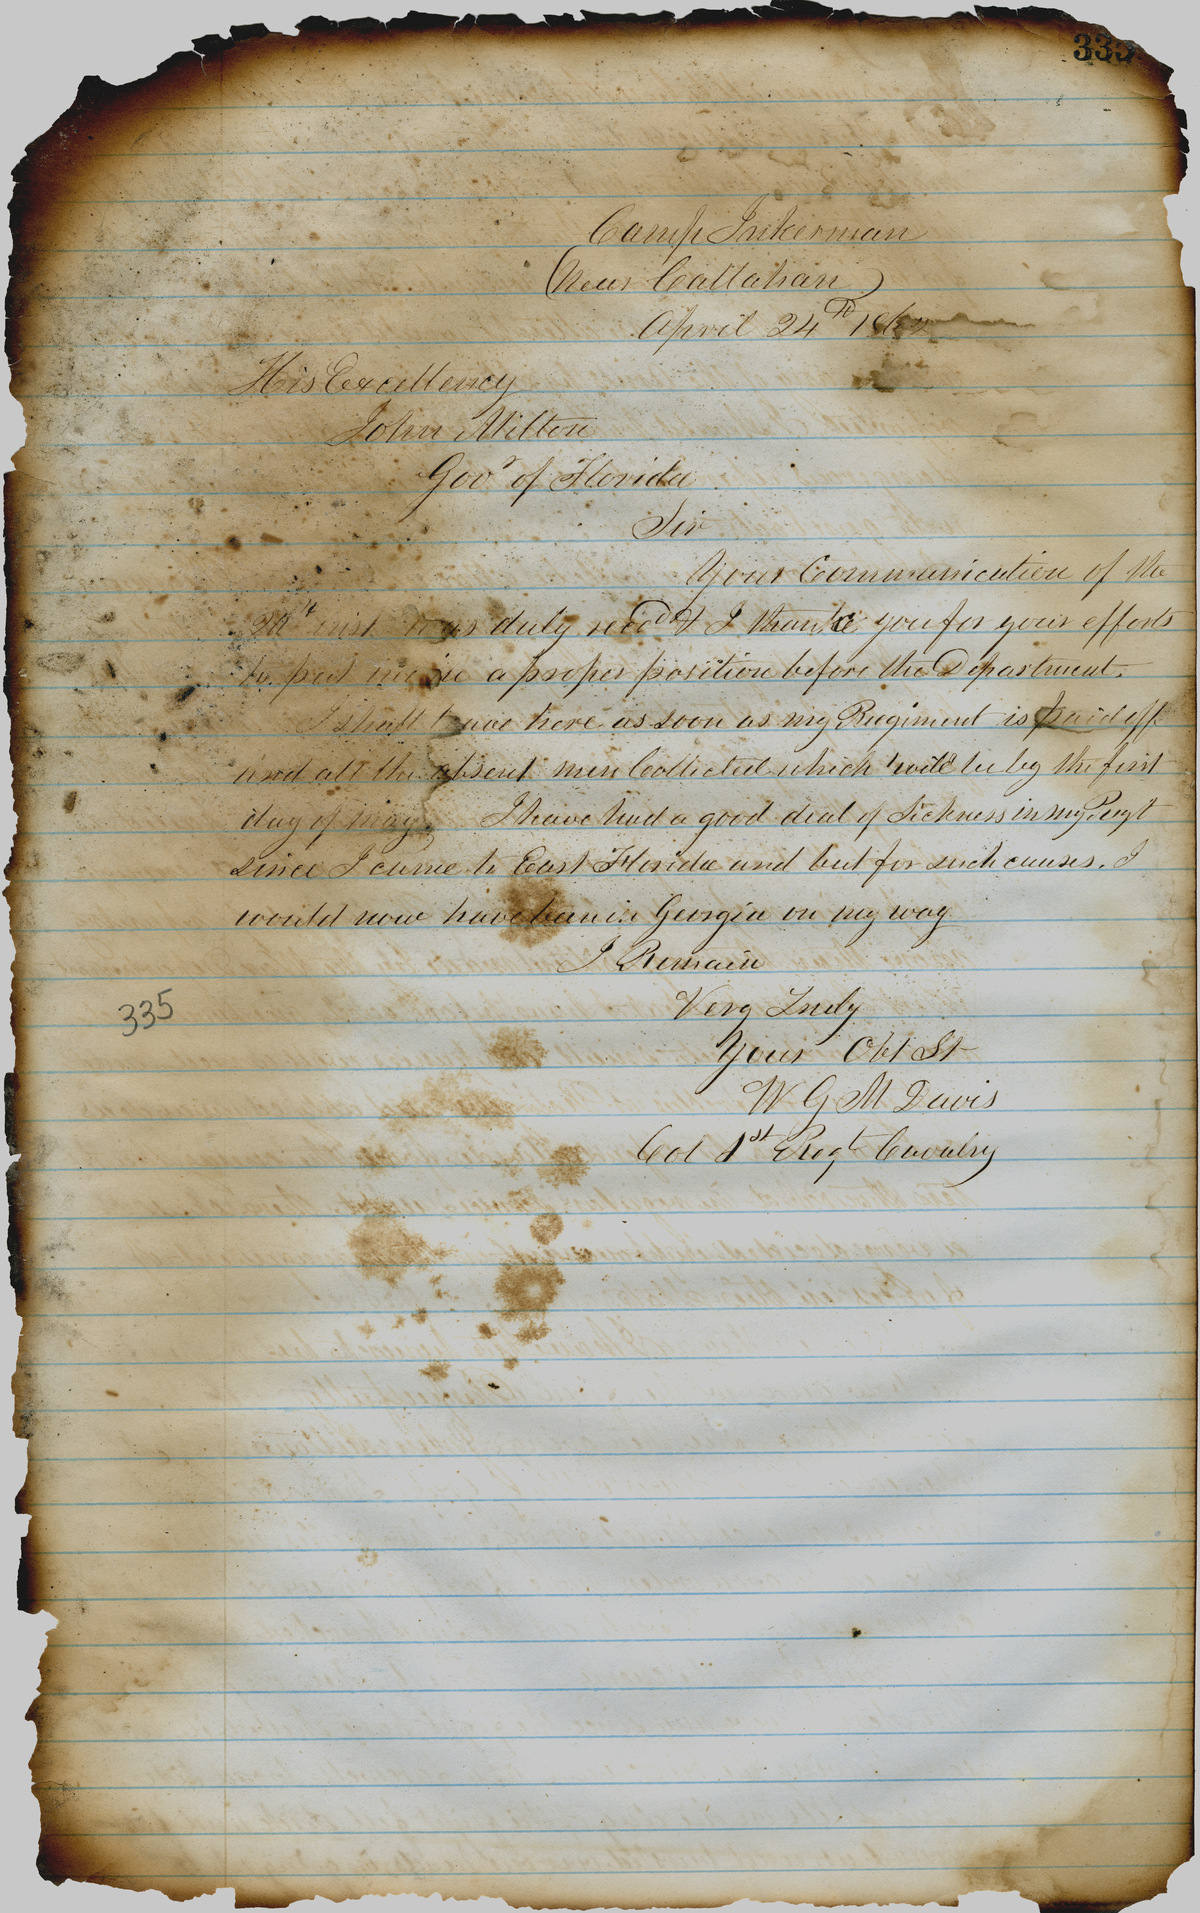 335
Camp Inkerman
(Near Callahan)
April 24th 1862
His Excellency
John Milton
Govr of Florida
Sir
Your Communication of the
inst was duly recd & I thank you for your efforts
to put me in a proper position before the Department.
I shall leave here as soon as my Regiment is paid off
and all the absent men Collected which will be by the first
day of May. I have had a good deal of Sickness in my Regt
since I came to East Florida and but for such causes, I
would now have been in Georgia on my way
I Remain
Very Truly
Your Obt St
W G M Davis
Col 1st Regt Cavalry
335